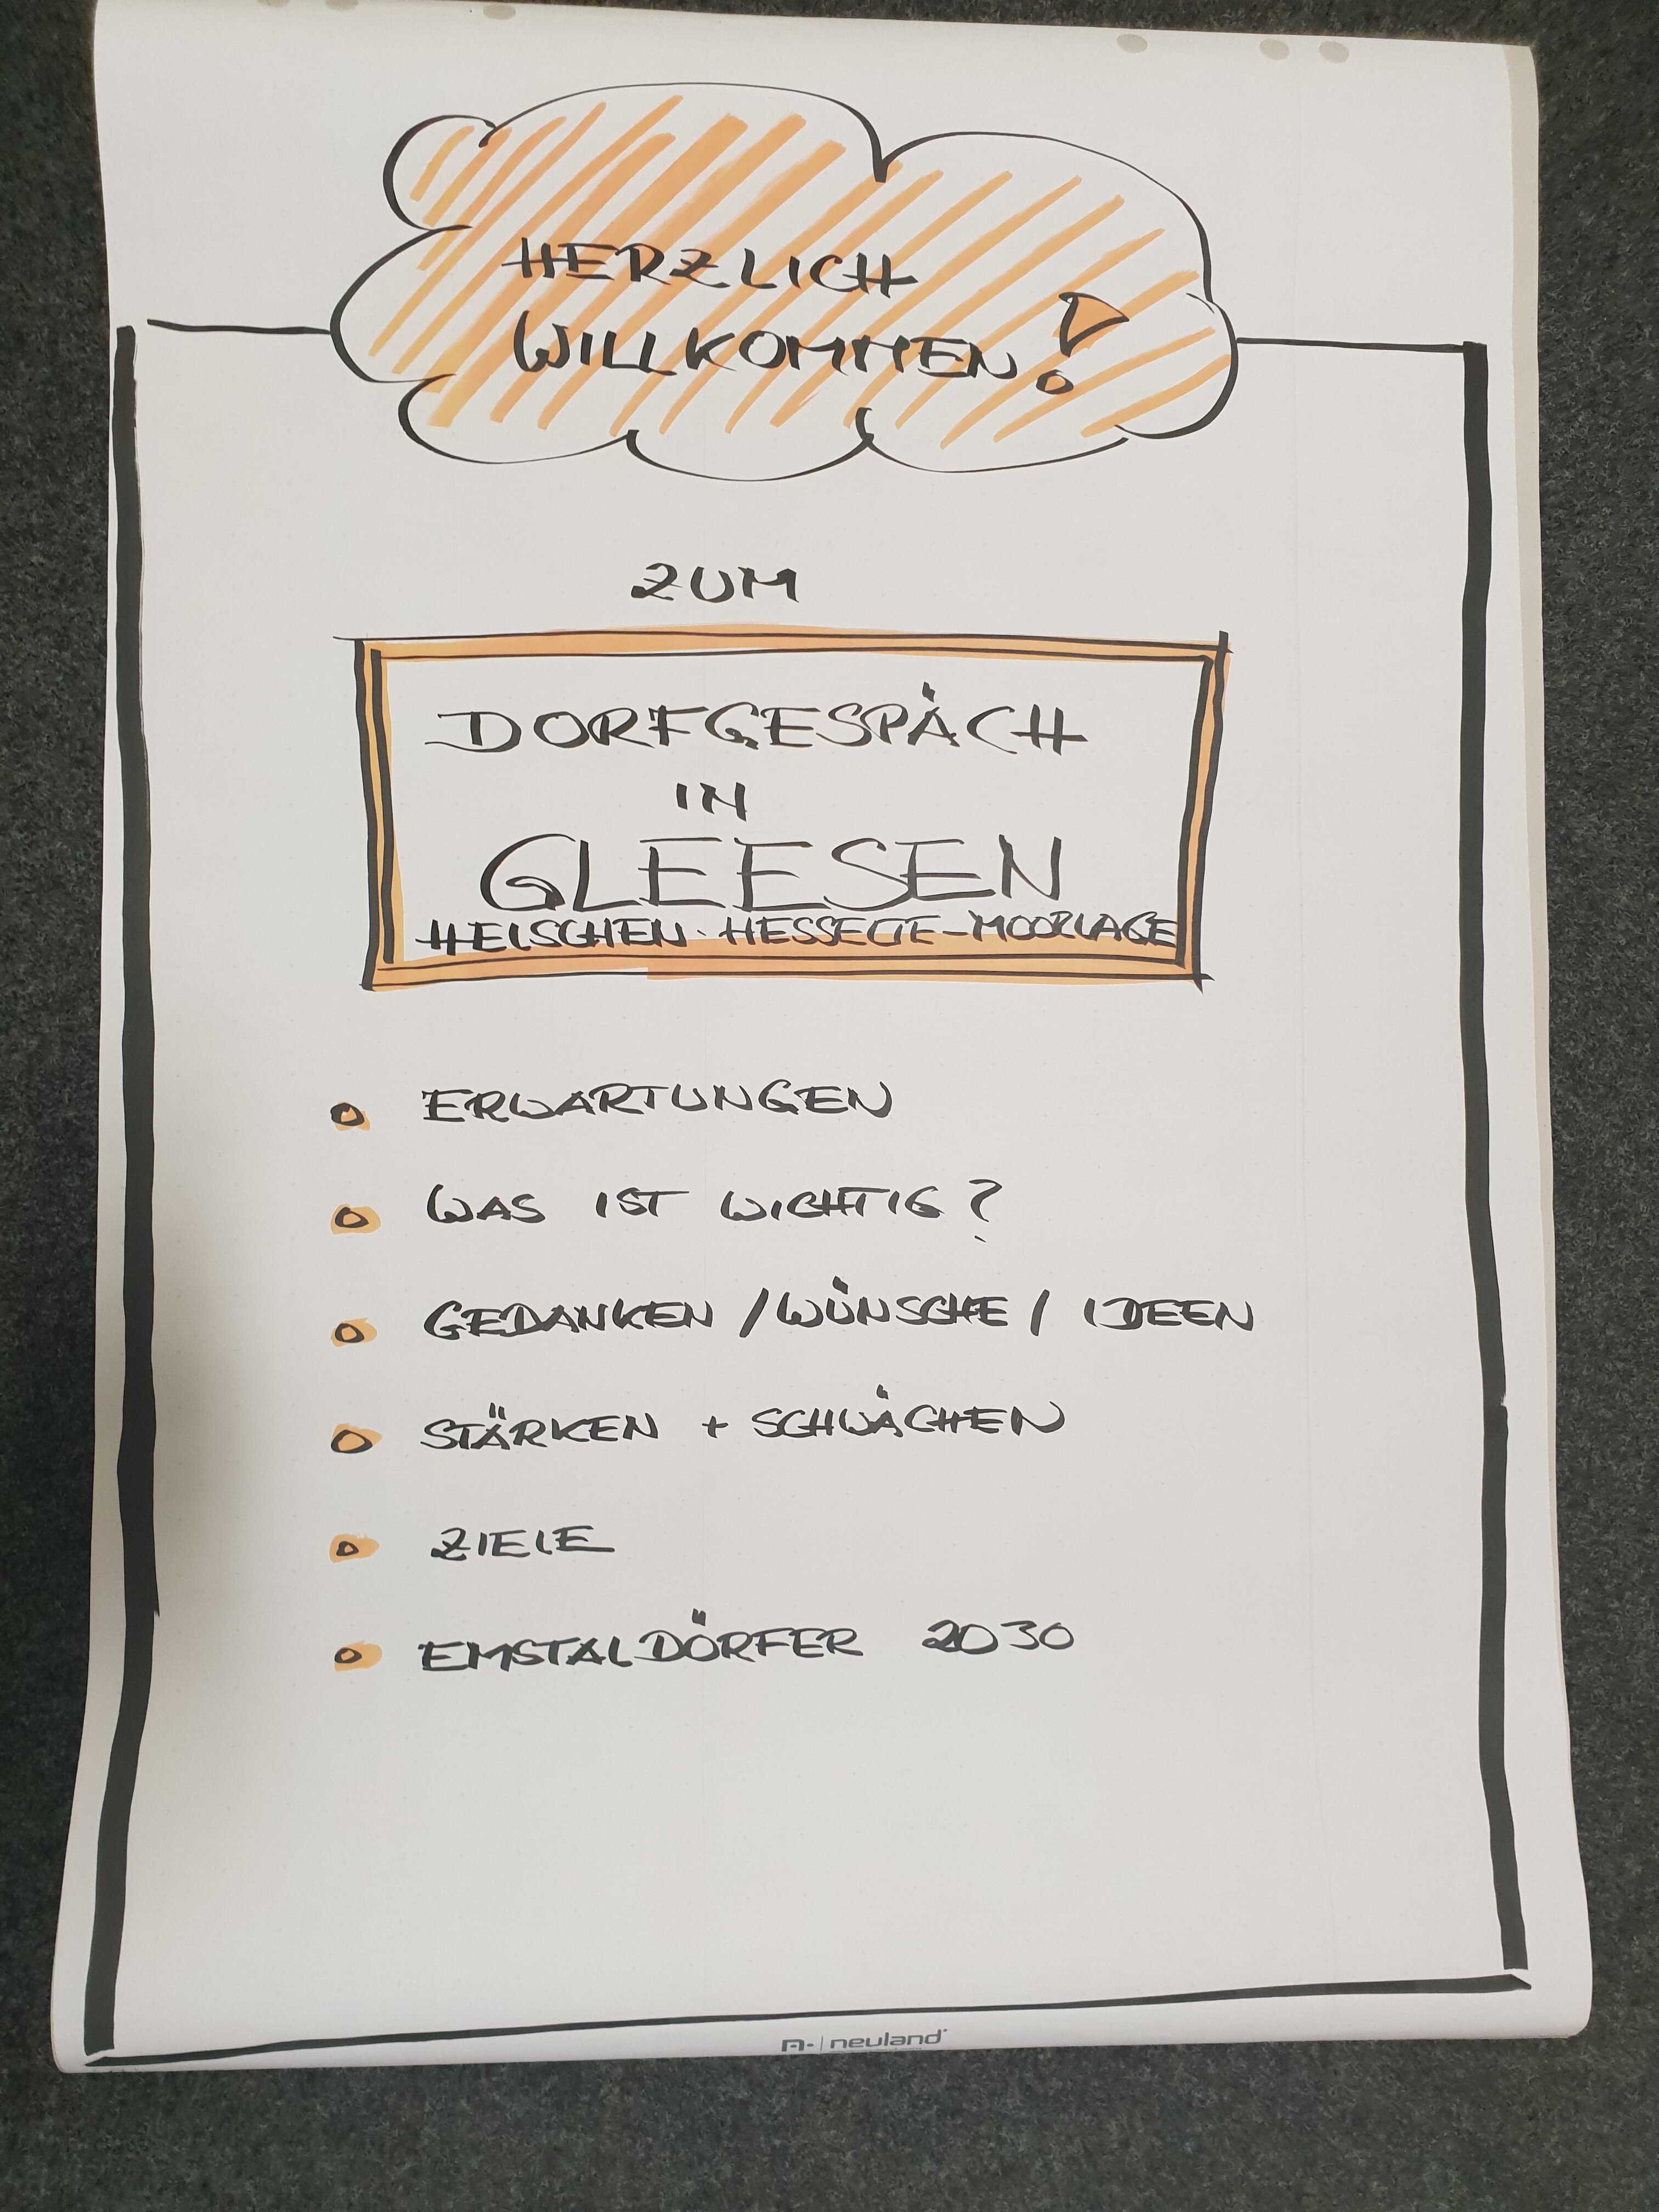 HERZLICH
WILLKOMMEN!
ZUM
DORFGESPÄCH
IN
GLEESEN
HELSCHEN · HESSELTE - MOORLAGE
ERWARTUNGEN
WAS IST WICHTIG?
GEDANKEN / WÜNSCHE / IDEEN
STÄRKEN + SCHWÄCHEN
ZIELE
EMSTALDÖRFER 2030
n· | neuland